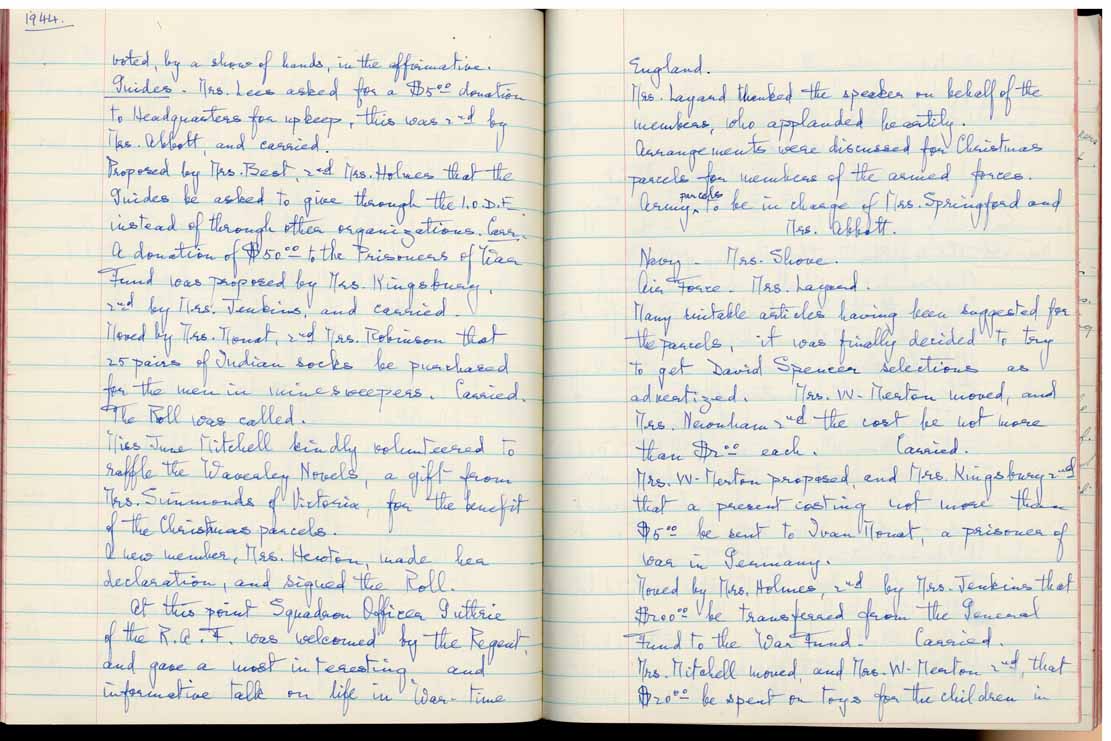 1944.
voted, by a show of hands, in the affirmative.
Guides. Mrs. Lees asked for a $5.00 donation
to Headquarters for upkeep, this was 2nd by
Mrs. Abbott, and carried.
Proposed by Mrs. Best, 2nd Mrs. Holmes that the
Guides be asked to give through the I.O.D.E.
instead of through other organizations. Carr.
A donation of $50.00 to the Prisoners of War
Fund was proposed by Mrs. Kingsbury,
2nd by Mrs. Jenkins, and carried.
Moved by Mrs. Mouat, 2nd Mrs. Robinson that
25 pairs of Indian socks be purchased
for the men in minesweepers. Carried.
The Roll was called.
Miss June Mitchell kindly volunteered to
raffle the Waverley Novels a gift from
Mrs. Simmonds of Victoria, for the benefit
of the Christmas parcels.
A new member, Mrs. Heroton, made her
declaration, and signed the Roll.
At this point Squadron Officer Guthrie
of the R.A.F. was welcomed by the Regent,
and gave a most interesting and
informative talk on life in War-time
England.
Mrs. Layard thanked the speaker on behalf of the
members, who applauded heartily.
Arrangements were discussed for Christmas
parcels for members of the armed forces.
Army parcels to be in charge of Mrs. Springford and
Mrs. Abbott.
Navy - Mrs. Shove.
Air Force. Mrs. Layard.
Many suitable articles having been suggested for
the parcels, it was finally decided to try
to get David Spencer selections as
advertized. Mrs. W-Merton moved, and
Mrs. Newnham 2nd the cost be not more
than $2.00 each. Carried.
Mrs. W-Merton proposed, and Mrs. Kingsbury 2nd
that a present costing not more than
$5.00 be sent to Ivan Mouat, a prisoner of
war in Germany.
Moved by Mrs. Holmes, 2nd by Mrs. Jenkins that
$200.00 be transferred from the General
Fund to the War Fund. Carried.
Mrs. Mitchell moved, and Mrs. W-Merton 2nd, that
$20.00 be spent on toys for the children in